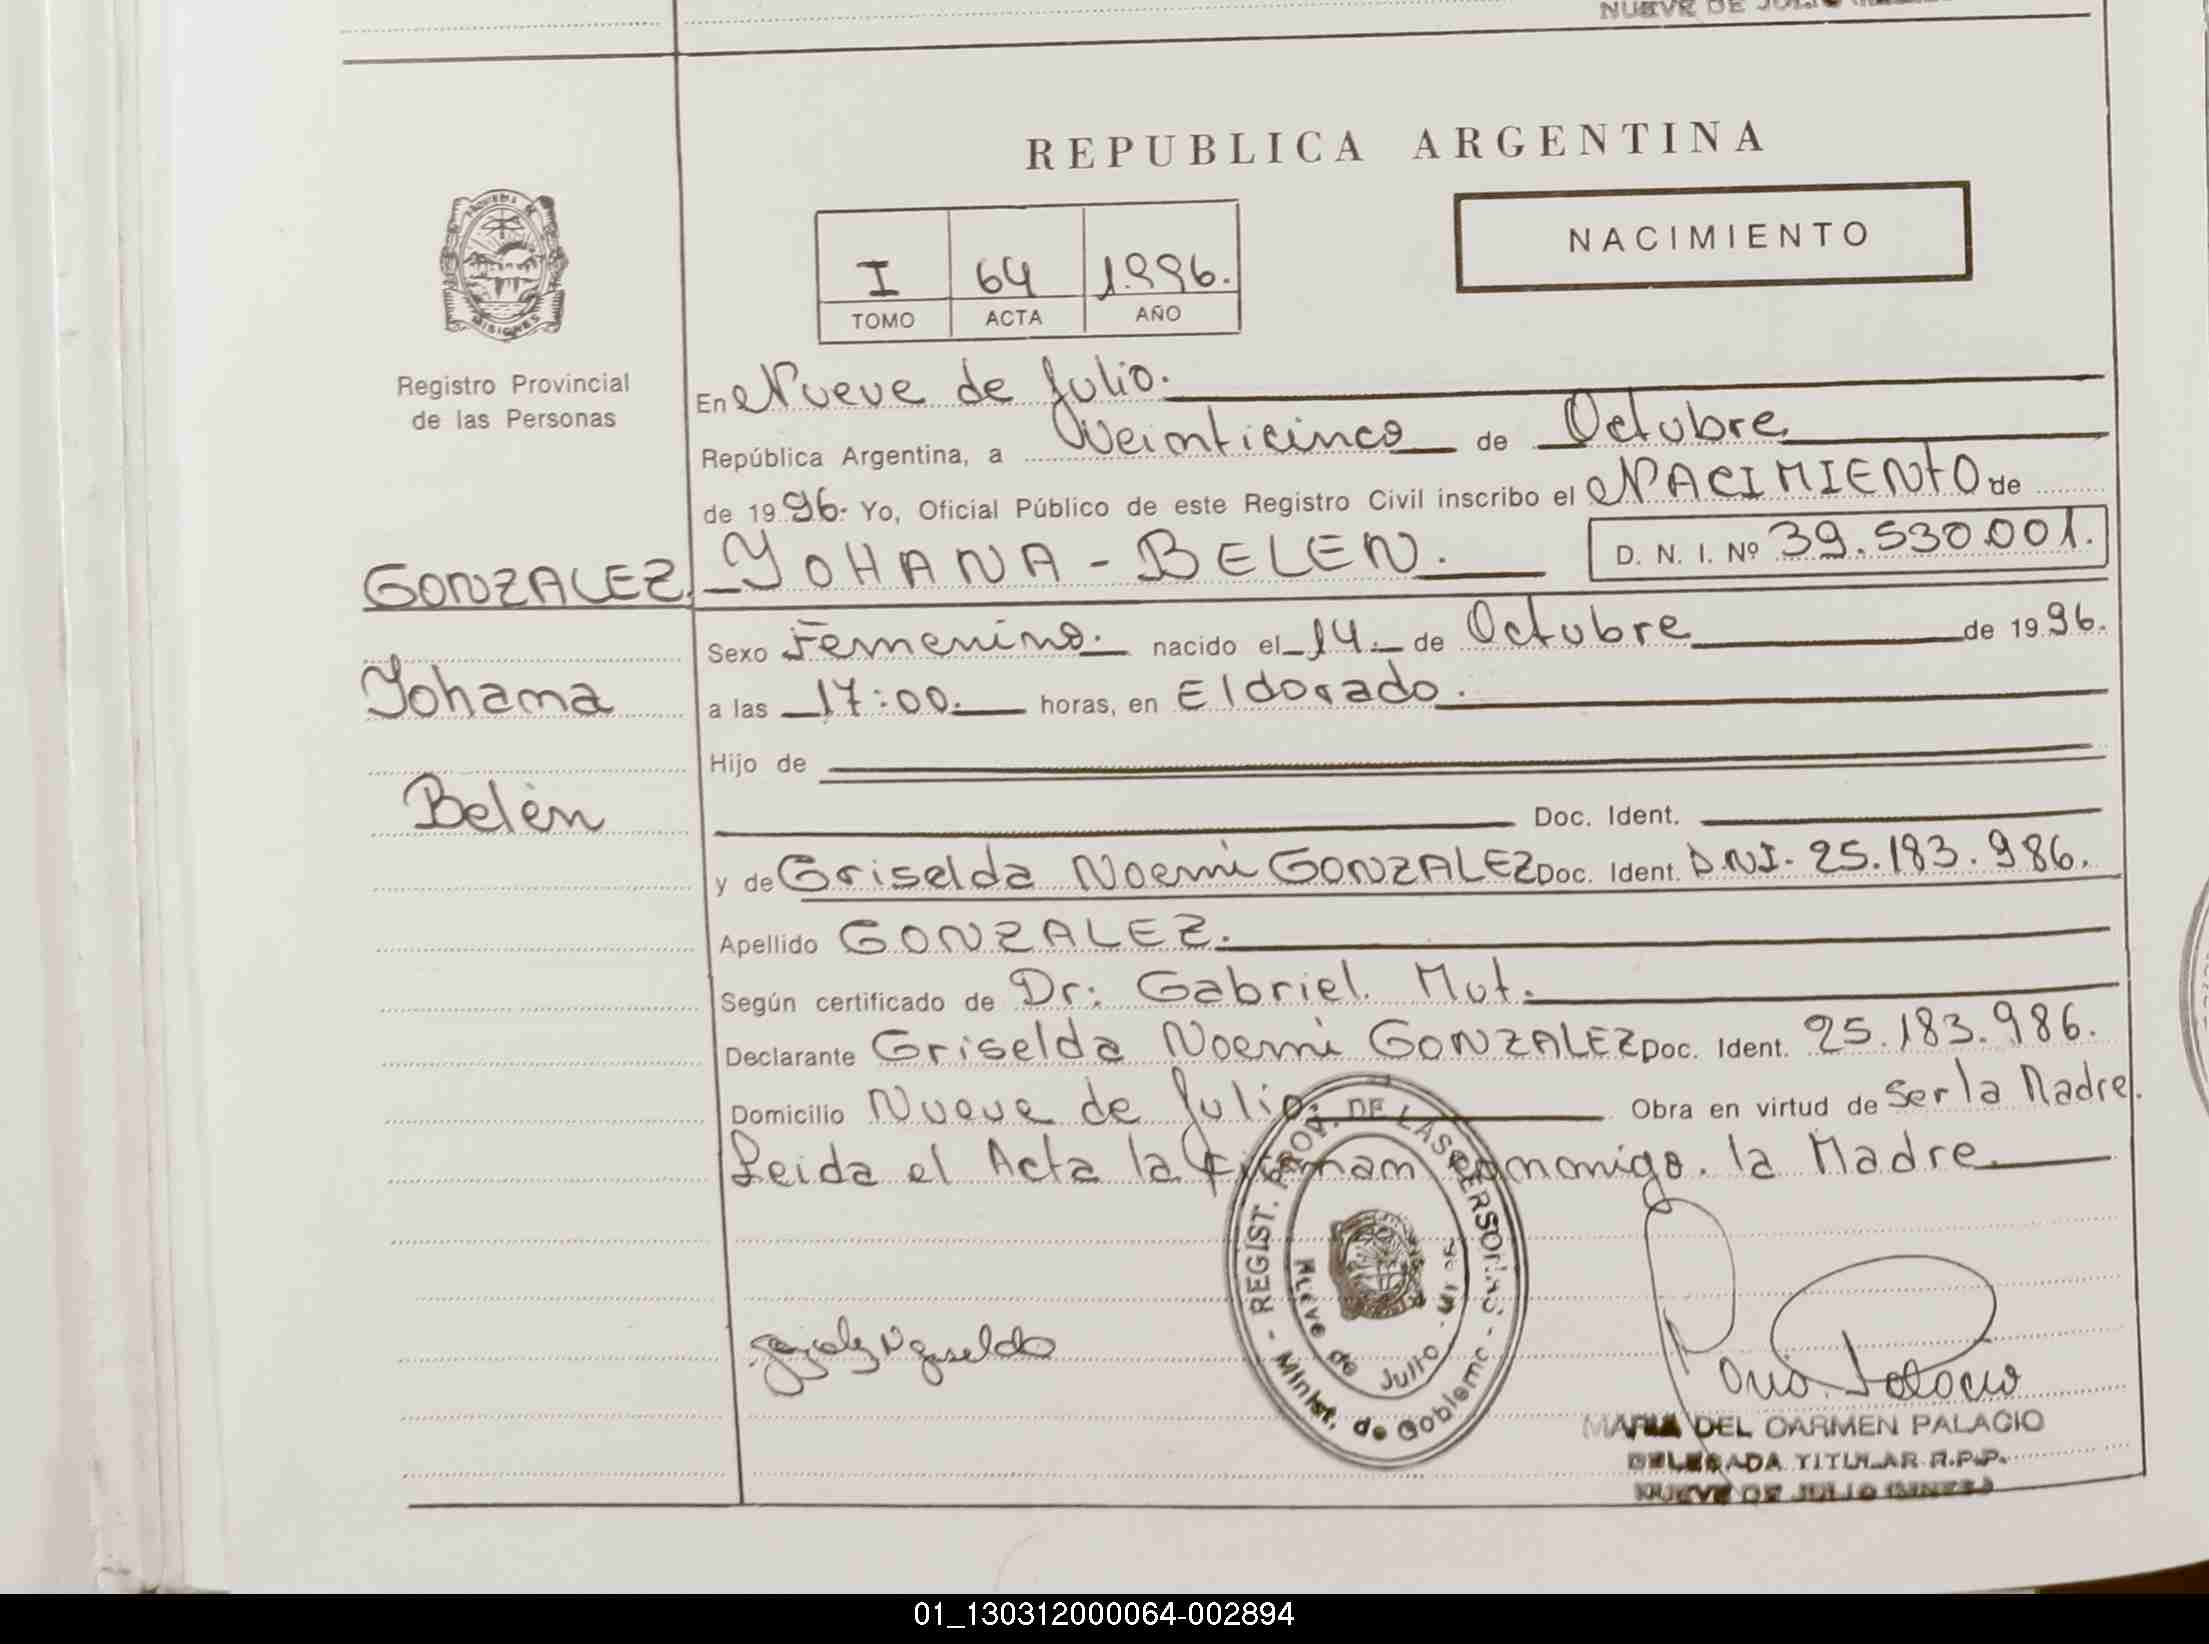 NUEVE DE JULIO
REPUBLICA ARGENTINA
NACIMIENTO
I 64 1.996.
TOMO ACTA AÑO
PROVINCIA DE
MISIONES
Registro Provincial
de las Personas
En Nueve de Julio.
República Argentina, a Veinticinco de Octubre
de 1996. Yo, Oficial Público de este Registro Civil inscribo el NACIMIENTO de
GONZALEZ, YOHANA - BELEN. D. N. I. Nº 39.530.001.
Sexo Femenino. nacido el 14. de Octubre de 1996.
Yohana
a las 17:00. horas, en Eldorado.
Hijo de
Belén
Doc. Ident.
y de Griselda Noemi GONZALEZ Doc. Ident. D.N.I. 25.183.986.
Apellido GONZALEZ.
Según certificado de Dr: Gabriel. Mut.
Declarante Griselda Noemi GONZALEZ Doc. Ident. 25.183.986.
Domicilio Nueve de Julio. Obra en virtud de Ser la Madre.
Leida el Acta la firman conmigo. la Madre.
- REGIST. PROV. DE LAS PERSONAS - Minist. de Gobierno
Nueve de Julio - Mnes.
Gonzalez N Griselda
MARIA DEL CARMEN PALACIO
DELEGADA TITULAR R.P.P.
NUEVE DE JULIO (MNES.)
01_130312000064-002894